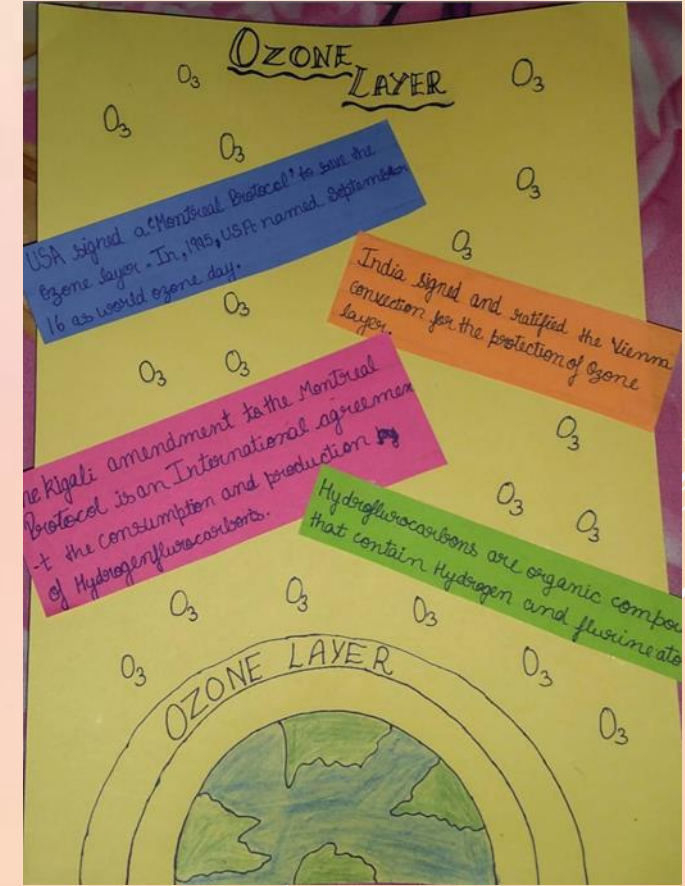 OZONE
LAYER
O3
O3
O3
O3
O3
USA signed a "Montreal Protocol" to save the
Ozone layer. In, 1995, USA named September
16 as world ozone day.
O3
India signed and ratified the Vienna
convection for the protection of Ozone
layer.
O3
O3
O3
he Kigali amendment to the Montreal
Protocol is an International agreemen
-t the consumption and production by
of Hydrogenflurocarbonts.
O3
O3
O3
Hydroflurocarbons are organic compou
that contain Hydrogen and flurine ato
O3
O3
O3
O3
O3
O3
OZONE LAYER